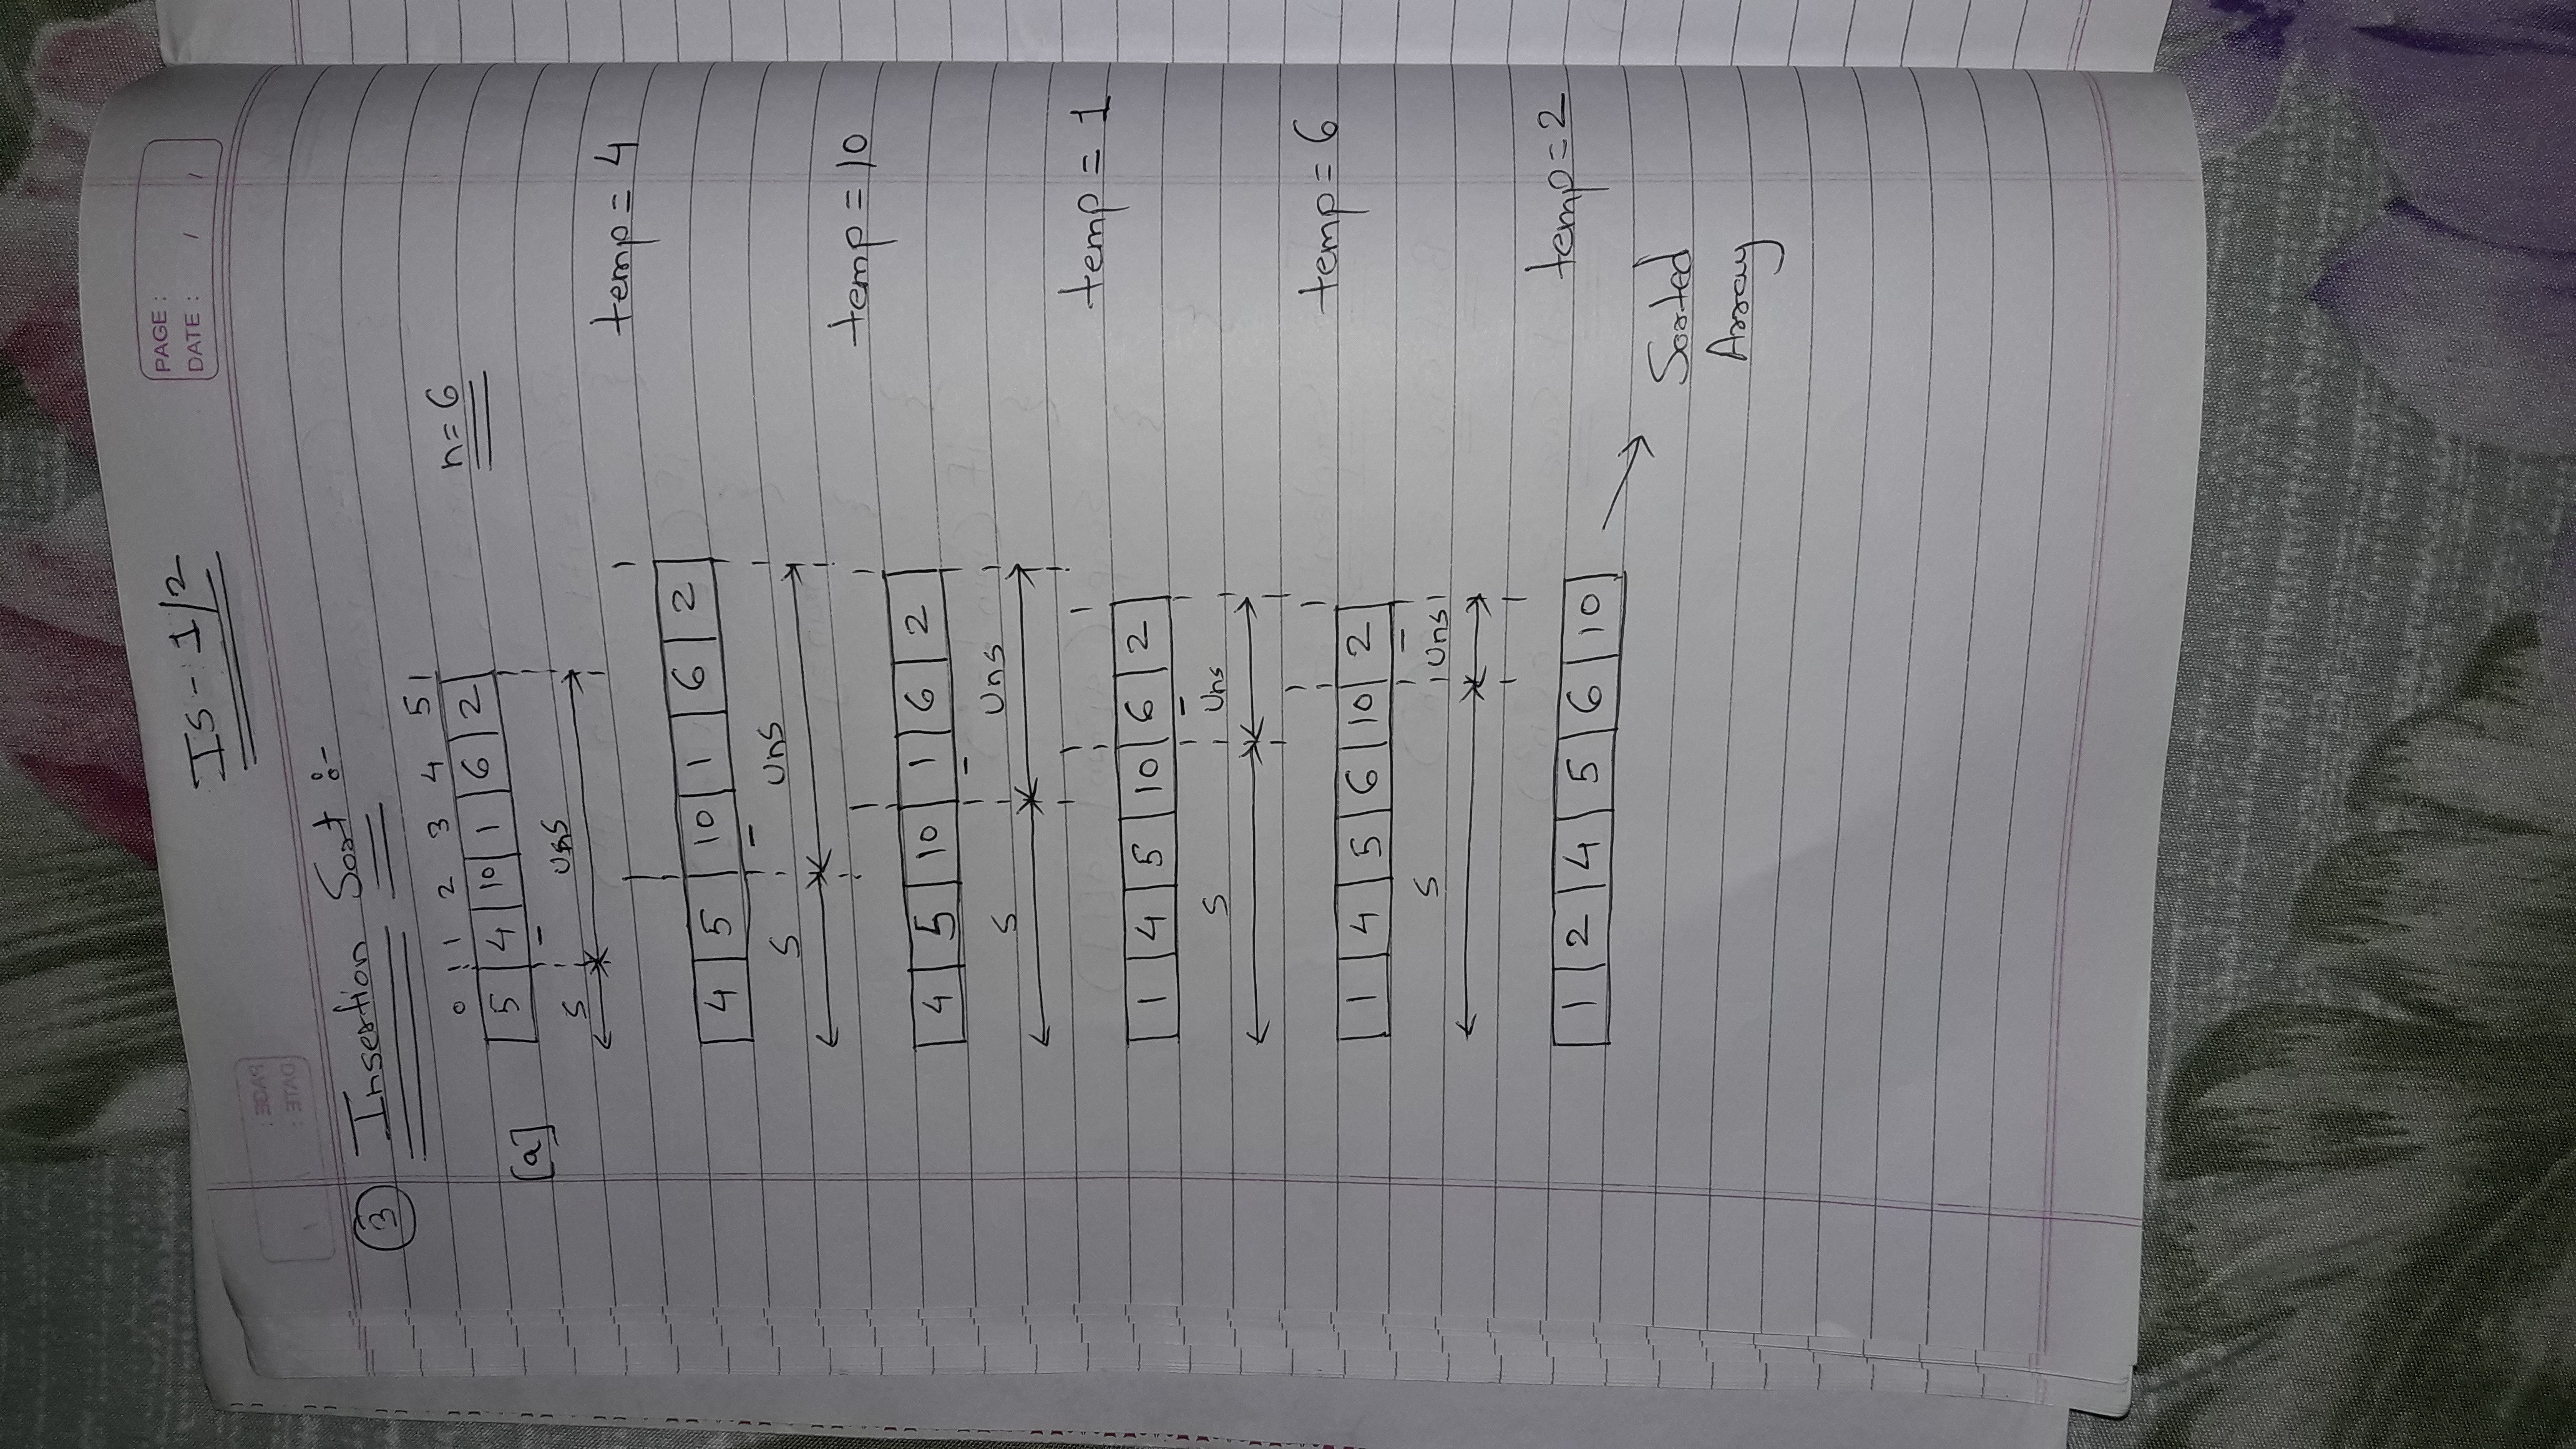 IS - 1/2
PAGE :
DATE : / /
③ Insertion Sort :-
0 1 2 3 4 5
[a] 5 4 10 1 6 2
n = 6
S Uns
temp = 4
4 5 10 1 6 2
S Uns
temp = 10
4 5 10 1 6 2
S Uns
temp = 1
1 4 5 10 6 2
S Uns
temp = 6
1 4 5 6 10 2
S Uns
temp = 2
1 2 4 5 6 10
Sorted
Array